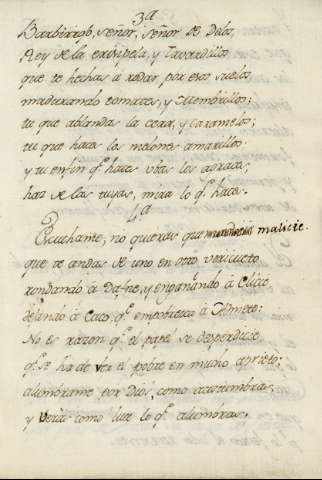 3ª
Barbirrojo, señor, señor de Delo,
Rey de la erisipela, y tavardillos
que te hechas à rodar por esos suelos,
madurando tomates, y membrillos;
tu que ablandas la cera, y caramelos;
tu que haces los melones amarillos
y tu en fin qᵉ haces
haz de las tuyas, mira lo qᵉ haces.
4ª
Escuchame, no quieras que malicie
que te andas de uno en otro vericueto
rondando à Dafne, y engañando à Clicie,
dejando à Caco qᵉ empobresca à Admeto:
No es razon qᵉ el papel se desperdicie,
qᵉ se ha de ver el pobre en mucho aprieto:
alumbrame por Dios, como acostumbras,
y verás como luce lo qᵉ alumbras.